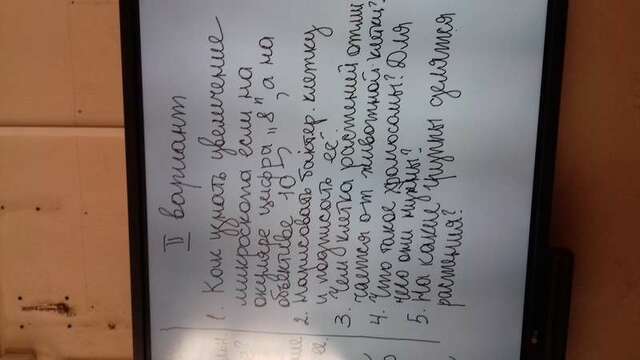 II вариант
1. Как узнать увеличение
микроскопа если на
окуляре цифра „8" а на
объективе 10 ?
2. Нарисовать бактер. клетку
и подписать её.
3. Чем клетка растений отли
чается от животной клетки?
4. Что такое хромосомы? Для
чего они нужны?
5. На какие группы делятся
растения?